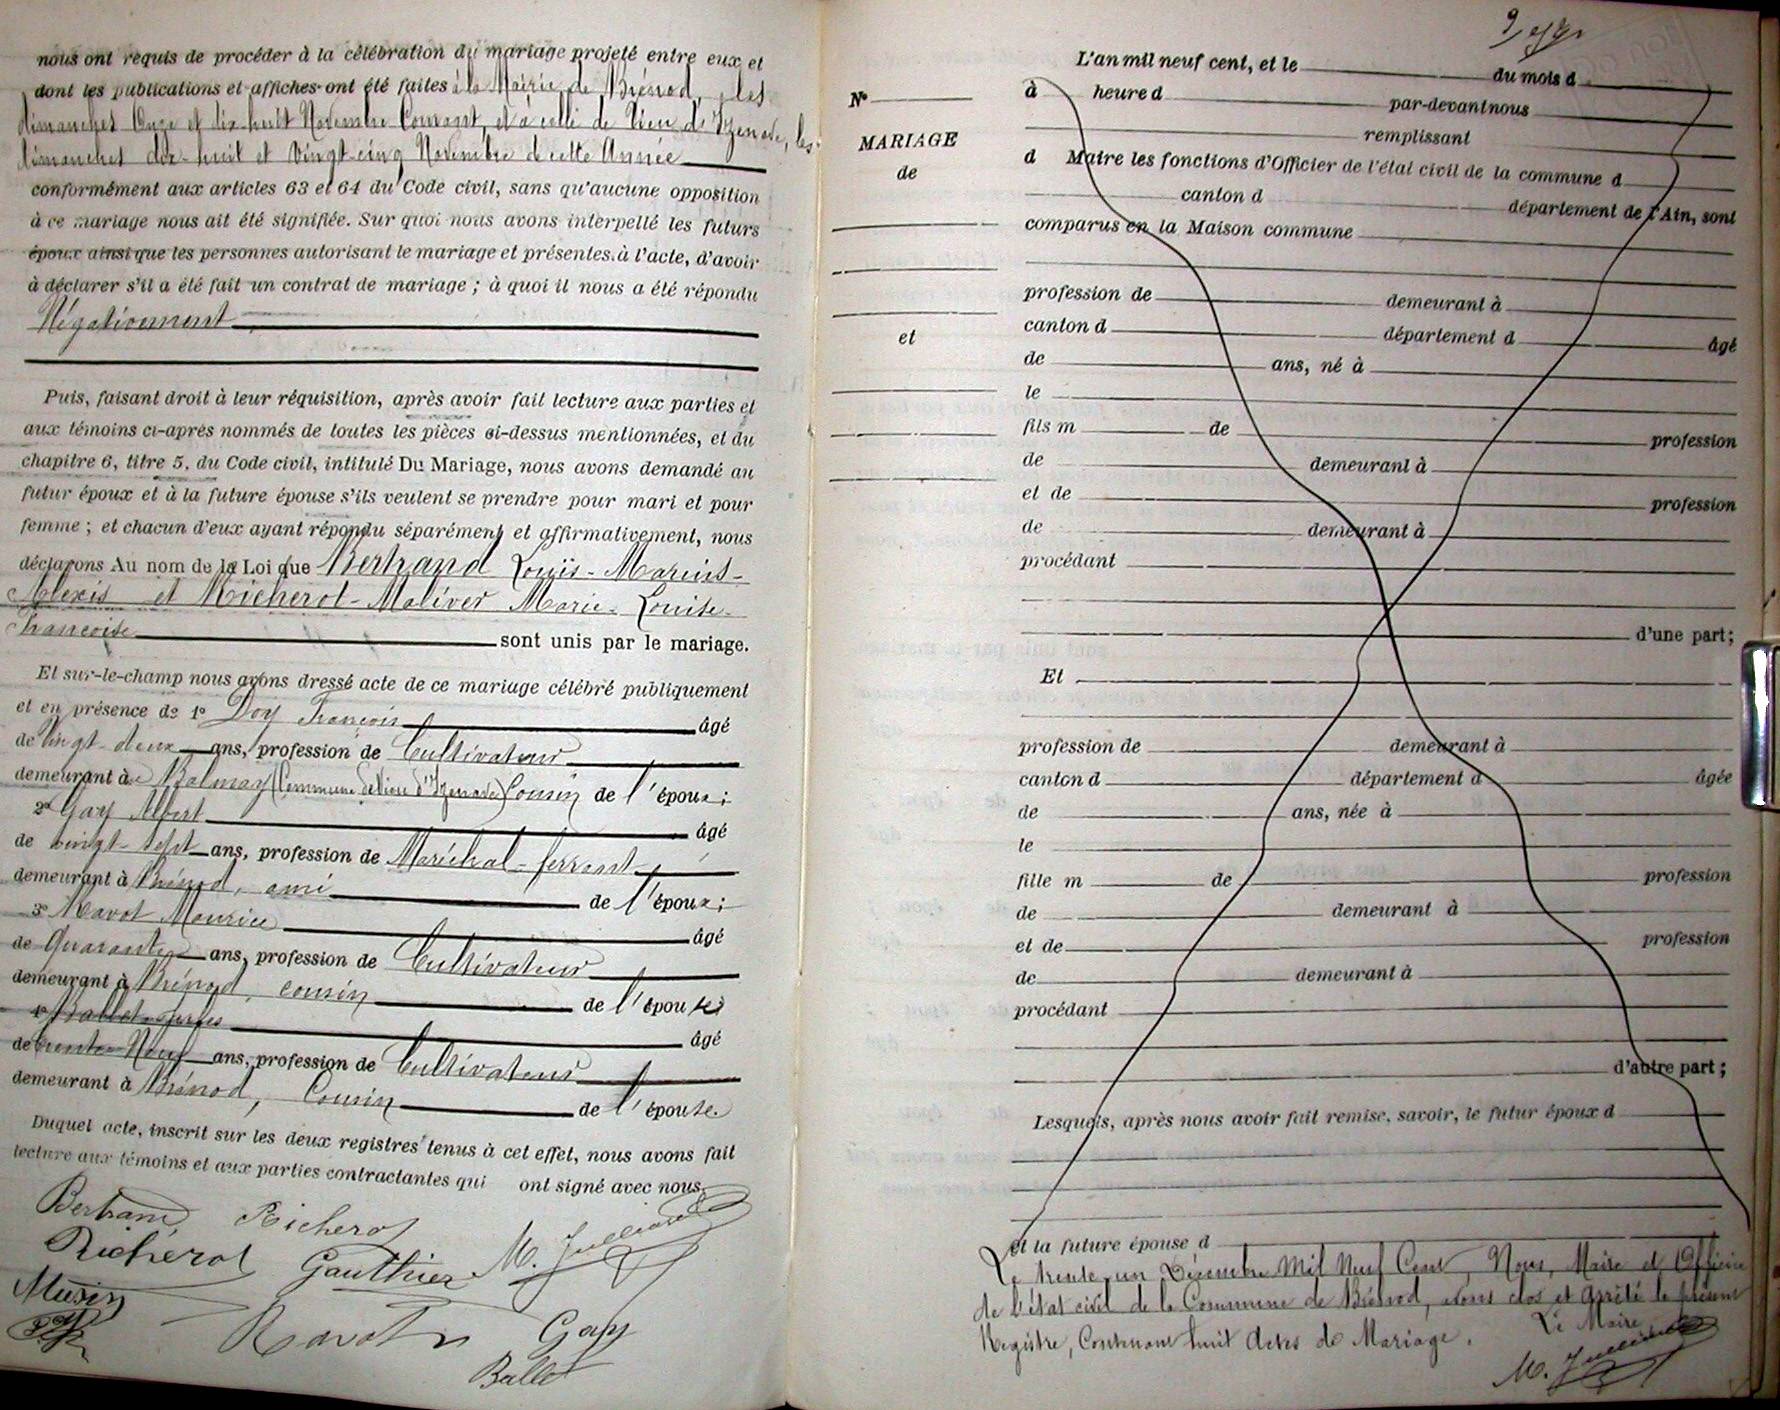 nous ont requis de procéder à la célébration du mariage projeté entre eux et
dont les publications et affiches ont été faites à la Mairie de Brénod, les
dimanches Onze et dix-huit Novembre Courant, et à celle de Vieu d'Izenave, les
dimanches dix-huit et Vingt-cinq Novembre de cette Année
conformément aux articles 63 et 64 du Code civil, sans qu'aucune opposition
à ce mariage nous ait été signifiée. Sur quoi nous avons interpellé les futurs
époux ainsi que les personnes autorisant le mariage et présentes à l'acte, d'avoir
à déclarer s'il a été fait un contrat de mariage ; à quoi il nous a été répondu
Négativement
Puis, faisant droit à leur réquisition, après avoir fait lecture aux parties et
aux témoins ci-après nommés de toutes les pièces ci-dessus mentionnées, et du
chapitre 6, titre 5, du Code civil, intitulé Du Mariage, nous avons demandé au
futur époux et à la future épouse s'ils veulent se prendre pour mari et pour
femme ; et chacun d'eux ayant répondu séparément et affirmativement, nous
déclarons Au nom de la Loi que Bertrand Louis-Marius-
Alexis et Richerot-Maliver Marie-Louise-
Françoise sont unis par le mariage.
Et sur-le-champ nous avons dressé acte de ce mariage célébré publiquement
et en présence de 1° Doy François âgé
de Vingt-deux ans, profession de Cultivateur
demeurant à Balmay (Commune de Vieu d'Izenave) Cousin de l'époux ;
2° Gay Albert âgé
de vingt-sept ans, profession de Maréchal-ferrant
demeurant à Brénod, ami de l'époux ;
3° Ravot Maurice âgé
de Quarante ans, profession de Cultivateur
demeurant à Brénod, cousin de l'épouse
4° Ballet âgé
de trente-Neuf ans, profession de Cultivateur
demeurant à Brénod, Cousin de l'épouse.
Duquel acte, inscrit sur les deux registres tenus à cet effet, nous avons fait
lecture aux témoins et aux parties contractantes qui ont signé avec nous.
Bertrand Richerot
Richerot Gauthier M. Julliard
Musin
Ravot Gay
Ballet
L'an mil neuf cent, et le du mois d
N° à heure d par-devant nous
remplissant
MARIAGE
d Maire les fonctions d'Officier de l'état civil de la commune d
de
canton d département de l'Ain, sont
comparus en la Maison commune
profession de demeurant à
et
canton d département d âgé
de ans, né à
le
fils m de profession
de demeurant à
et de profession
de demeurant à
procédant
d'une part ;
Et
profession de demeurant à
canton d département d âgée
de ans, née à
le
fille m de profession
de demeurant à
et de profession
de demeurant à
procédant
d'autre part ;
Lesquels, après nous avoir fait remise, savoir, le futur époux d
et la future épouse d
Le trente-un Décembre Mil Neuf Cent, Nous, Maire et Officier
de l'état civil de la Commune de Brénod, avons clos et arrêté le présent
Registre, Contenant huit Actes de Mariage.
Le Maire
M. Julliard